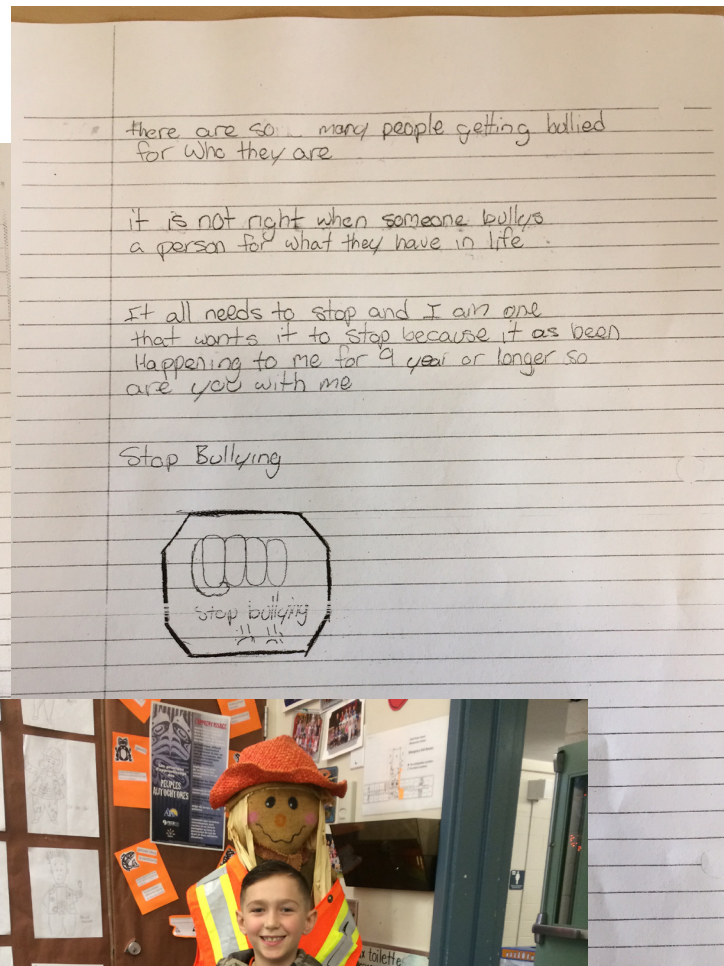 there are so many people getting bullied
for who they are
it is not right when someone bullys
a person for what they have in life
It all needs to stop and I am one
that wants it to stop because it as been
Happening to me for 9 year or longer so
are you with me
Stop Bullying
stop bullying
!!
PEUPLES
AUTOCHTONES
toilette